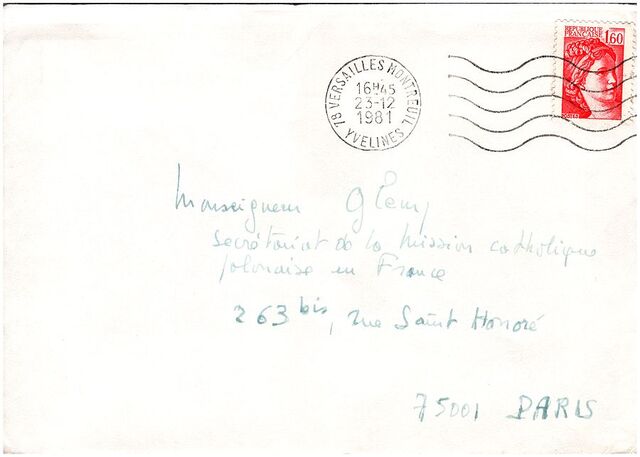 REPUBLIQUE
FRANÇAISE 1,60
78 VERSAILLES MONTREUIL
16H45
23-12
1981
YVELINES
POSTES
Monseigneur Glemp
Secrétariat de la Mission catholique
polonaise en France
263 bis, rue Saint Honoré
75001 PARIS